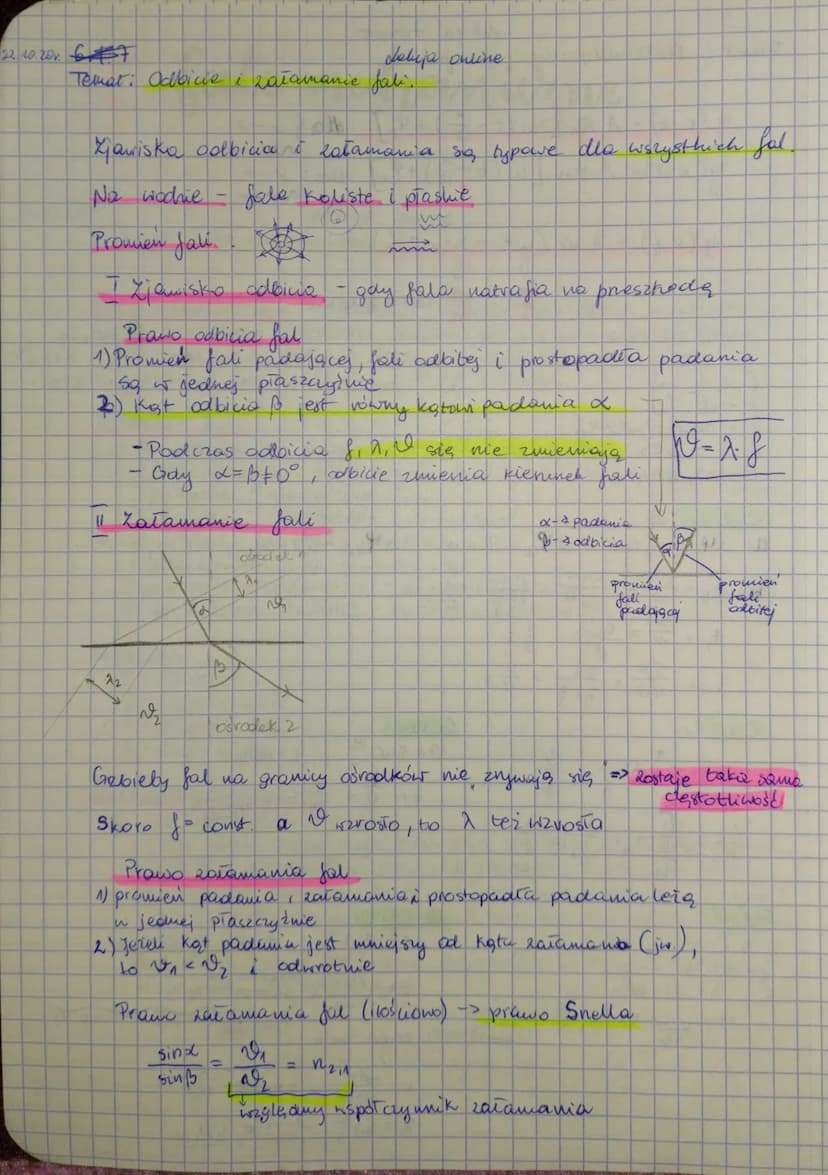 22.10.20r. lekcja online
Temat: Odbicie i załamanie fali.
Zjawiska odbicia i załamania są typowe dla wszystkich fal.
Na wodzie - fale koliste i płaskie
Promień fali.
I Zjawisko odbicia - gdy fala natrafia na przeszkodę
Prawo odbicia fal
1) Promień fali padającej, fali odbitej i prostopadła padania
są w jednej płaszczyźnie
2) Kąt odbicia β jest równy kątowi padania α
- Podczas odbicia f, λ, v się nie zmieniają
v = λ · f
- Gdy α=β≠0°, odbicie zmienia kierunek fali
II Załamanie fali
α - ∢ padania
β - ∢ odbicia
α β
promień fali padającej
promień fali odbitej
ośrodek 1
λ₁
α
v₁
β
λ₂
v₂
ośrodek 2
Grzbiety fal na granicy ośrodków nie "zrywają się" => zostaje taka sama
częstotliwość
Skoro f = const. a v wzrosło, to λ też wzrosła
Prawo załamania fal
1) promień padania, załamania i prostopadła padania leżą
w jednej płaszczyźnie
2) Jeżeli kąt padania jest mniejszy od kąta załamania (jw.),
to v₁ < v₂ i odwrotnie
Prawo załamania fal (ilościowo) -> prawo Snella
sinα / sinβ = v₁ / v₂ = n₂,₁
względny współczynnik załamania